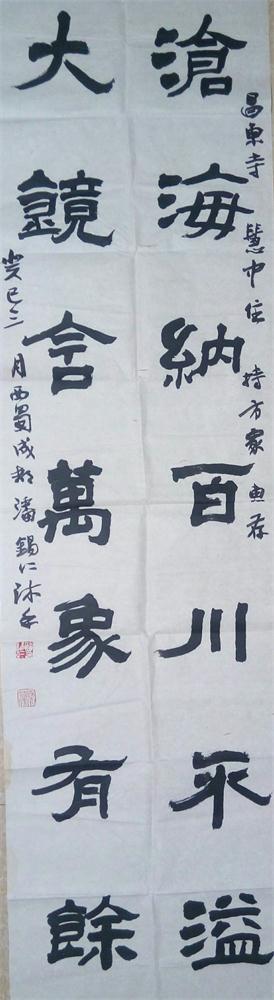 昌東寺 慧中住 持方家 惠存
滄海納百川不溢
大鏡含萬象有餘
癸巳三月西蜀成都潘錫仁沐手